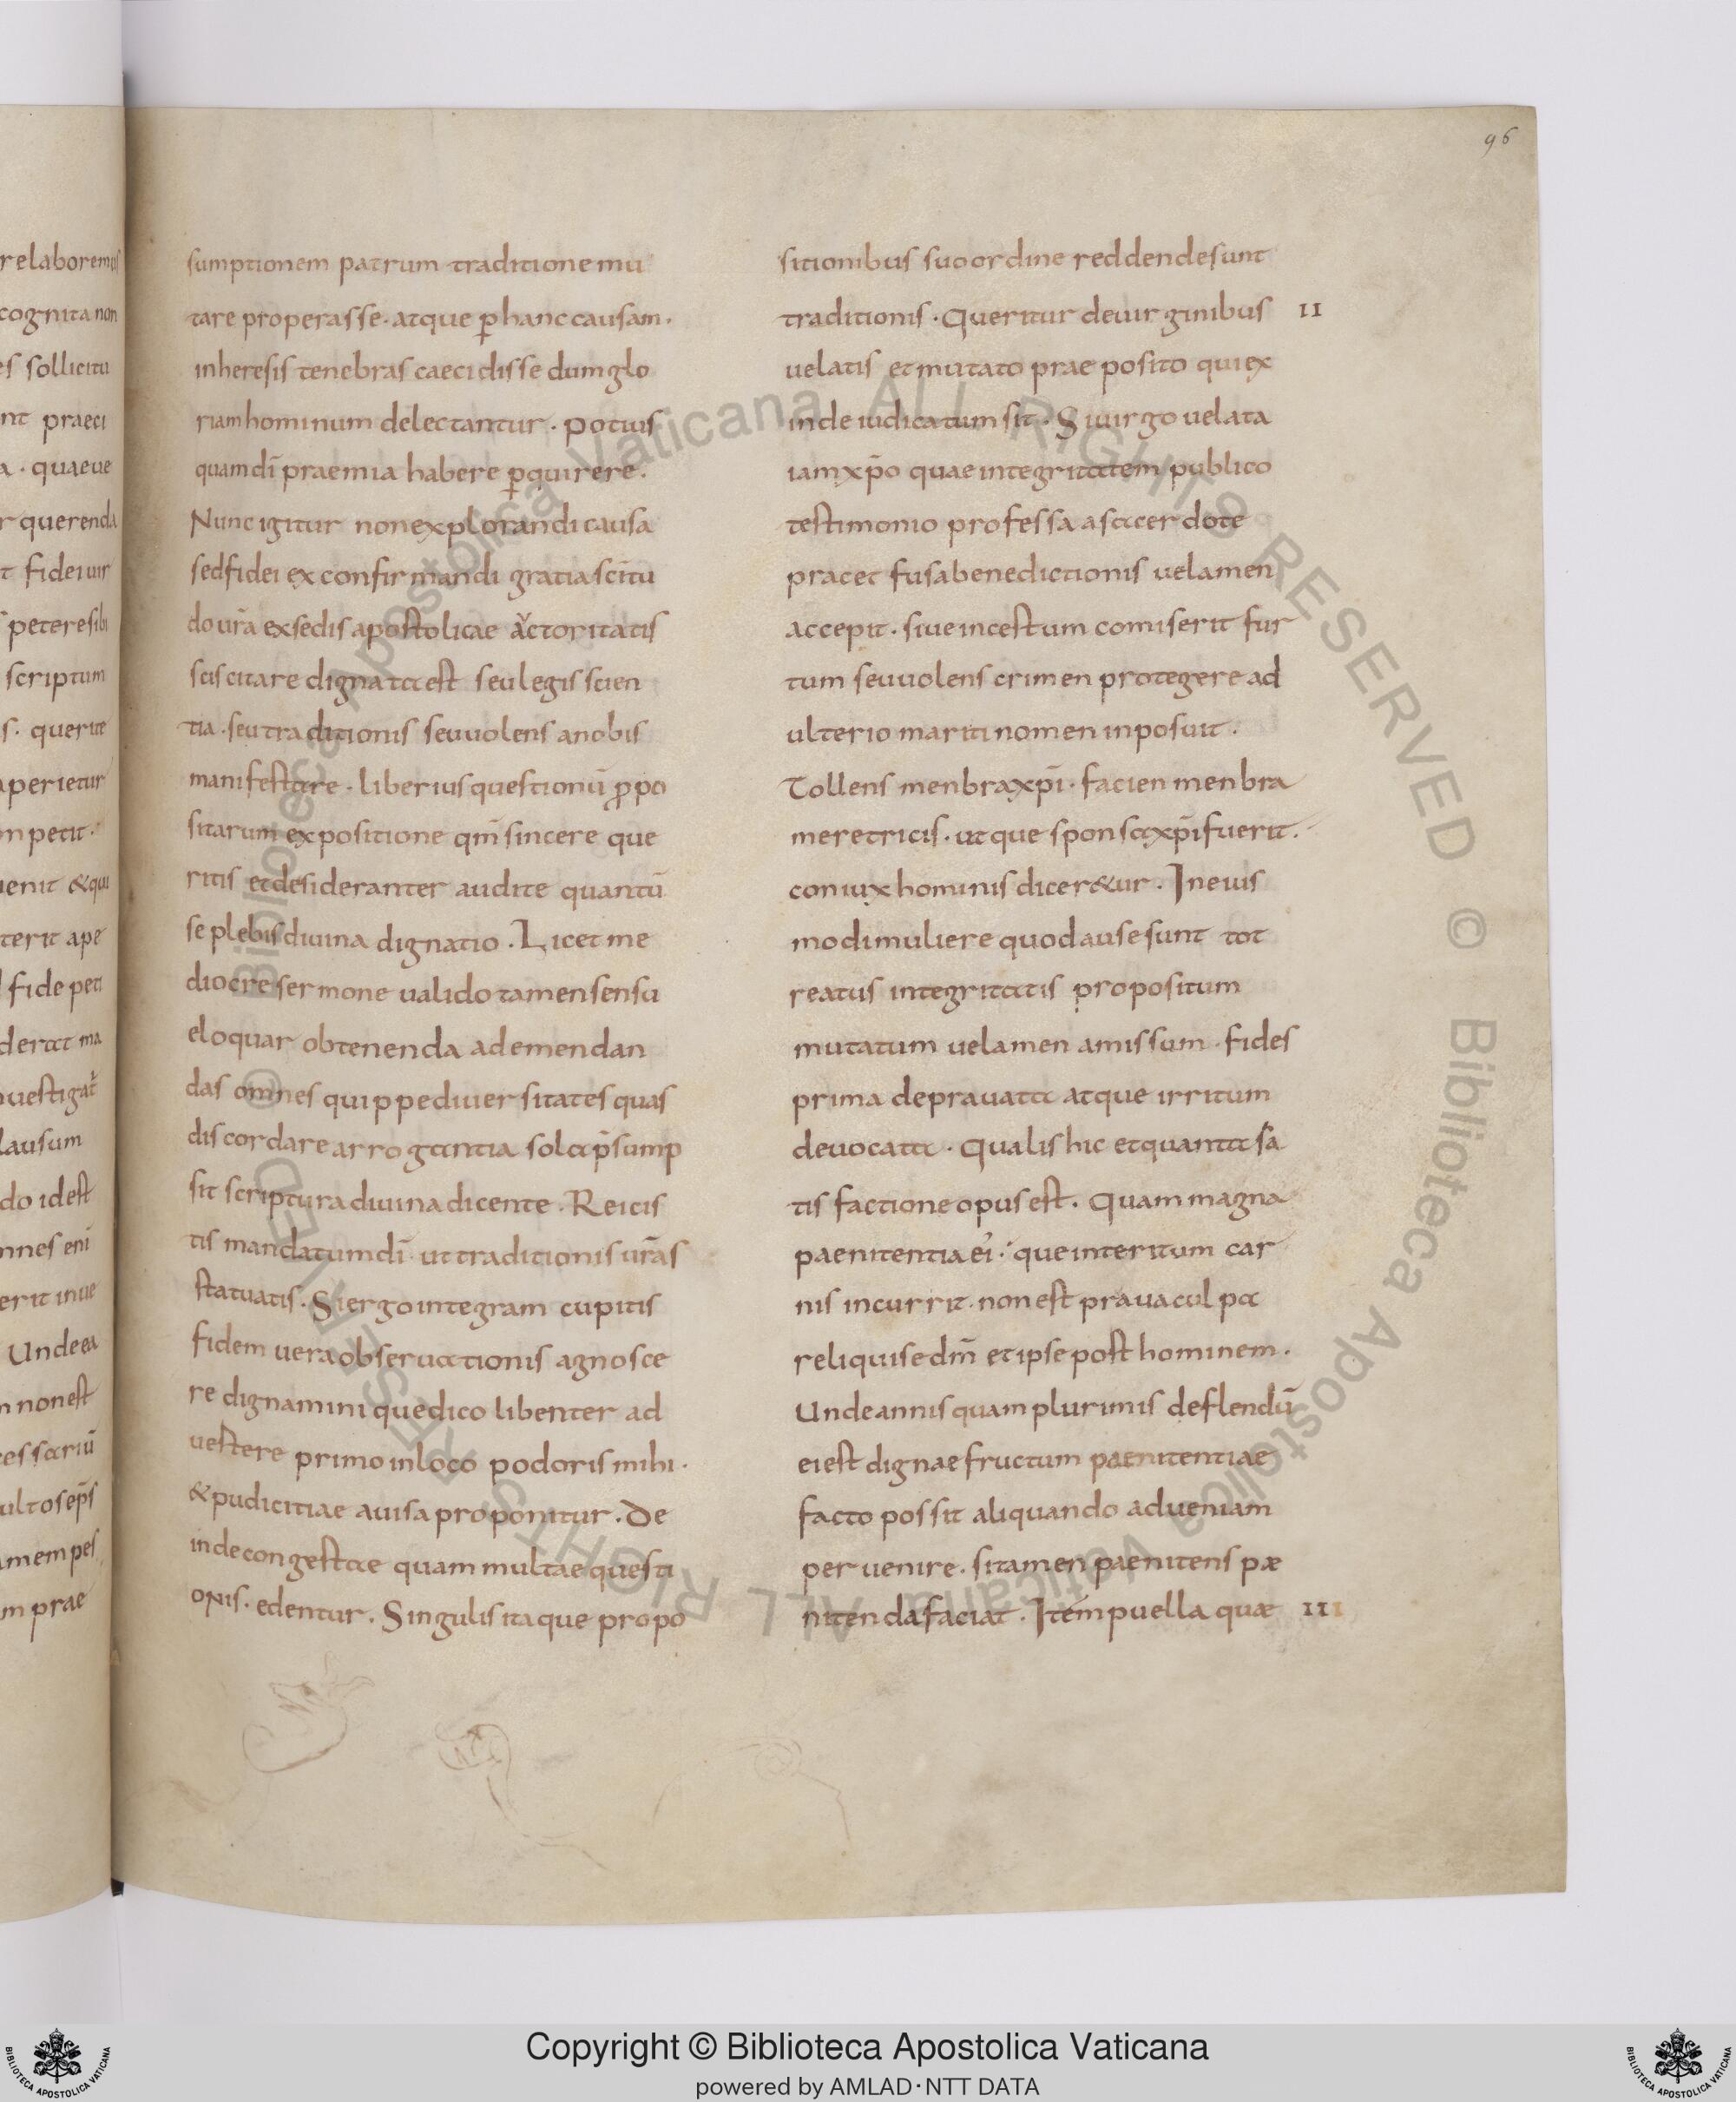 relaboremus
cognita non
es sollicitu
nt praeci
a · quaeue
r querenda
t fidei uir
peteresibi
scriptum
s · querite
aperietur
m petit ·
uenit & qui
terit ape
fide peti
derat ma
uestigat̄
lausum
do id est
mnes eni
erit inue
Unde ea
n non est
cessariū
ultos ep̄s
amem pes
m prae
96
sumptionem patrum traditione mu
tare properasse · atque ꝑ hanc causam ·
in heresis tenebras caecidisse dum glo
riam hominum delectantur · Potius
quam dī praemia habere ꝑquirere ·
Nunc igitur non explorandi causa
sed fidei ex confirmandi gratia scitu
do ur̄a ex sedis apostolicae auctoritatis
sciscitare dignata est seu legis scien
tia · seu traditionis seu uolens a nobis
manifestare · liberius questionū ꝓpo
sitarum expositione qm̄ sincere que
ritis et desideranter audite quantū
se plebis diuina dignatio · Licet me
diocre sermone ualido tamen sensu
eloquar obtenenda ad emendan
das omnes quippe diuersitates quas
discordare arrogantia sola p̄sump
sit scriptura diuina dicente · Reicis
tis mandatum dī · ut traditionis ur̄as
statuatis · Si ergo integram cupitis
fidem uera obseruationis agnosce
re dignamini que dico libenter ad
uestere primo in loco podoris mihi ·
& pudicitiae auisa proponitur · De
inde congestae quam multae questi
onis · edentur · Singulis itaque propo
sitionibus suo ordine reddende sunt
traditionis · Queritur de uirginibus II
uelatis et mutato prae posito qui ex
inde iudicatum sit · Si uirgo uelata
iam xp̄o quae integritatem publico
testimonio professa a sacerdote
pracet fusa benedictionis uelamen
accepit · siue incestum comiserit fur
tum seu uolens crimen protegere ad
ulterio mariti nomen inposuit ·
Tollens menbra xp̄i · facien menbra
meretricis · ut que sponsa xp̄i fuerit ·
coniux hominis dicer&ur · In eius
modi muliere quod ause sunt tot
reatus integritatis propositum
mutatum uelamen amissum · fides
prima deprauata atque irritum
deuocata · Qualis hic et quanta sa
tis factione opus est · Quam magna
paenitentia ei · que interitum car
nis incurrit · non est praua culpa
reliquise dm̄ et ipse post hominem ·
Unde annis quam plurimis deflendū
ei est dignae fructum paenitentiae
facto possit aliquando ad ueniam
peruenire · si tamen paenitens pæ
nitenda faciat · Item puella quæ III
Copyright © Biblioteca Apostolica Vaticana
powered by AMLAD·NTT DATA